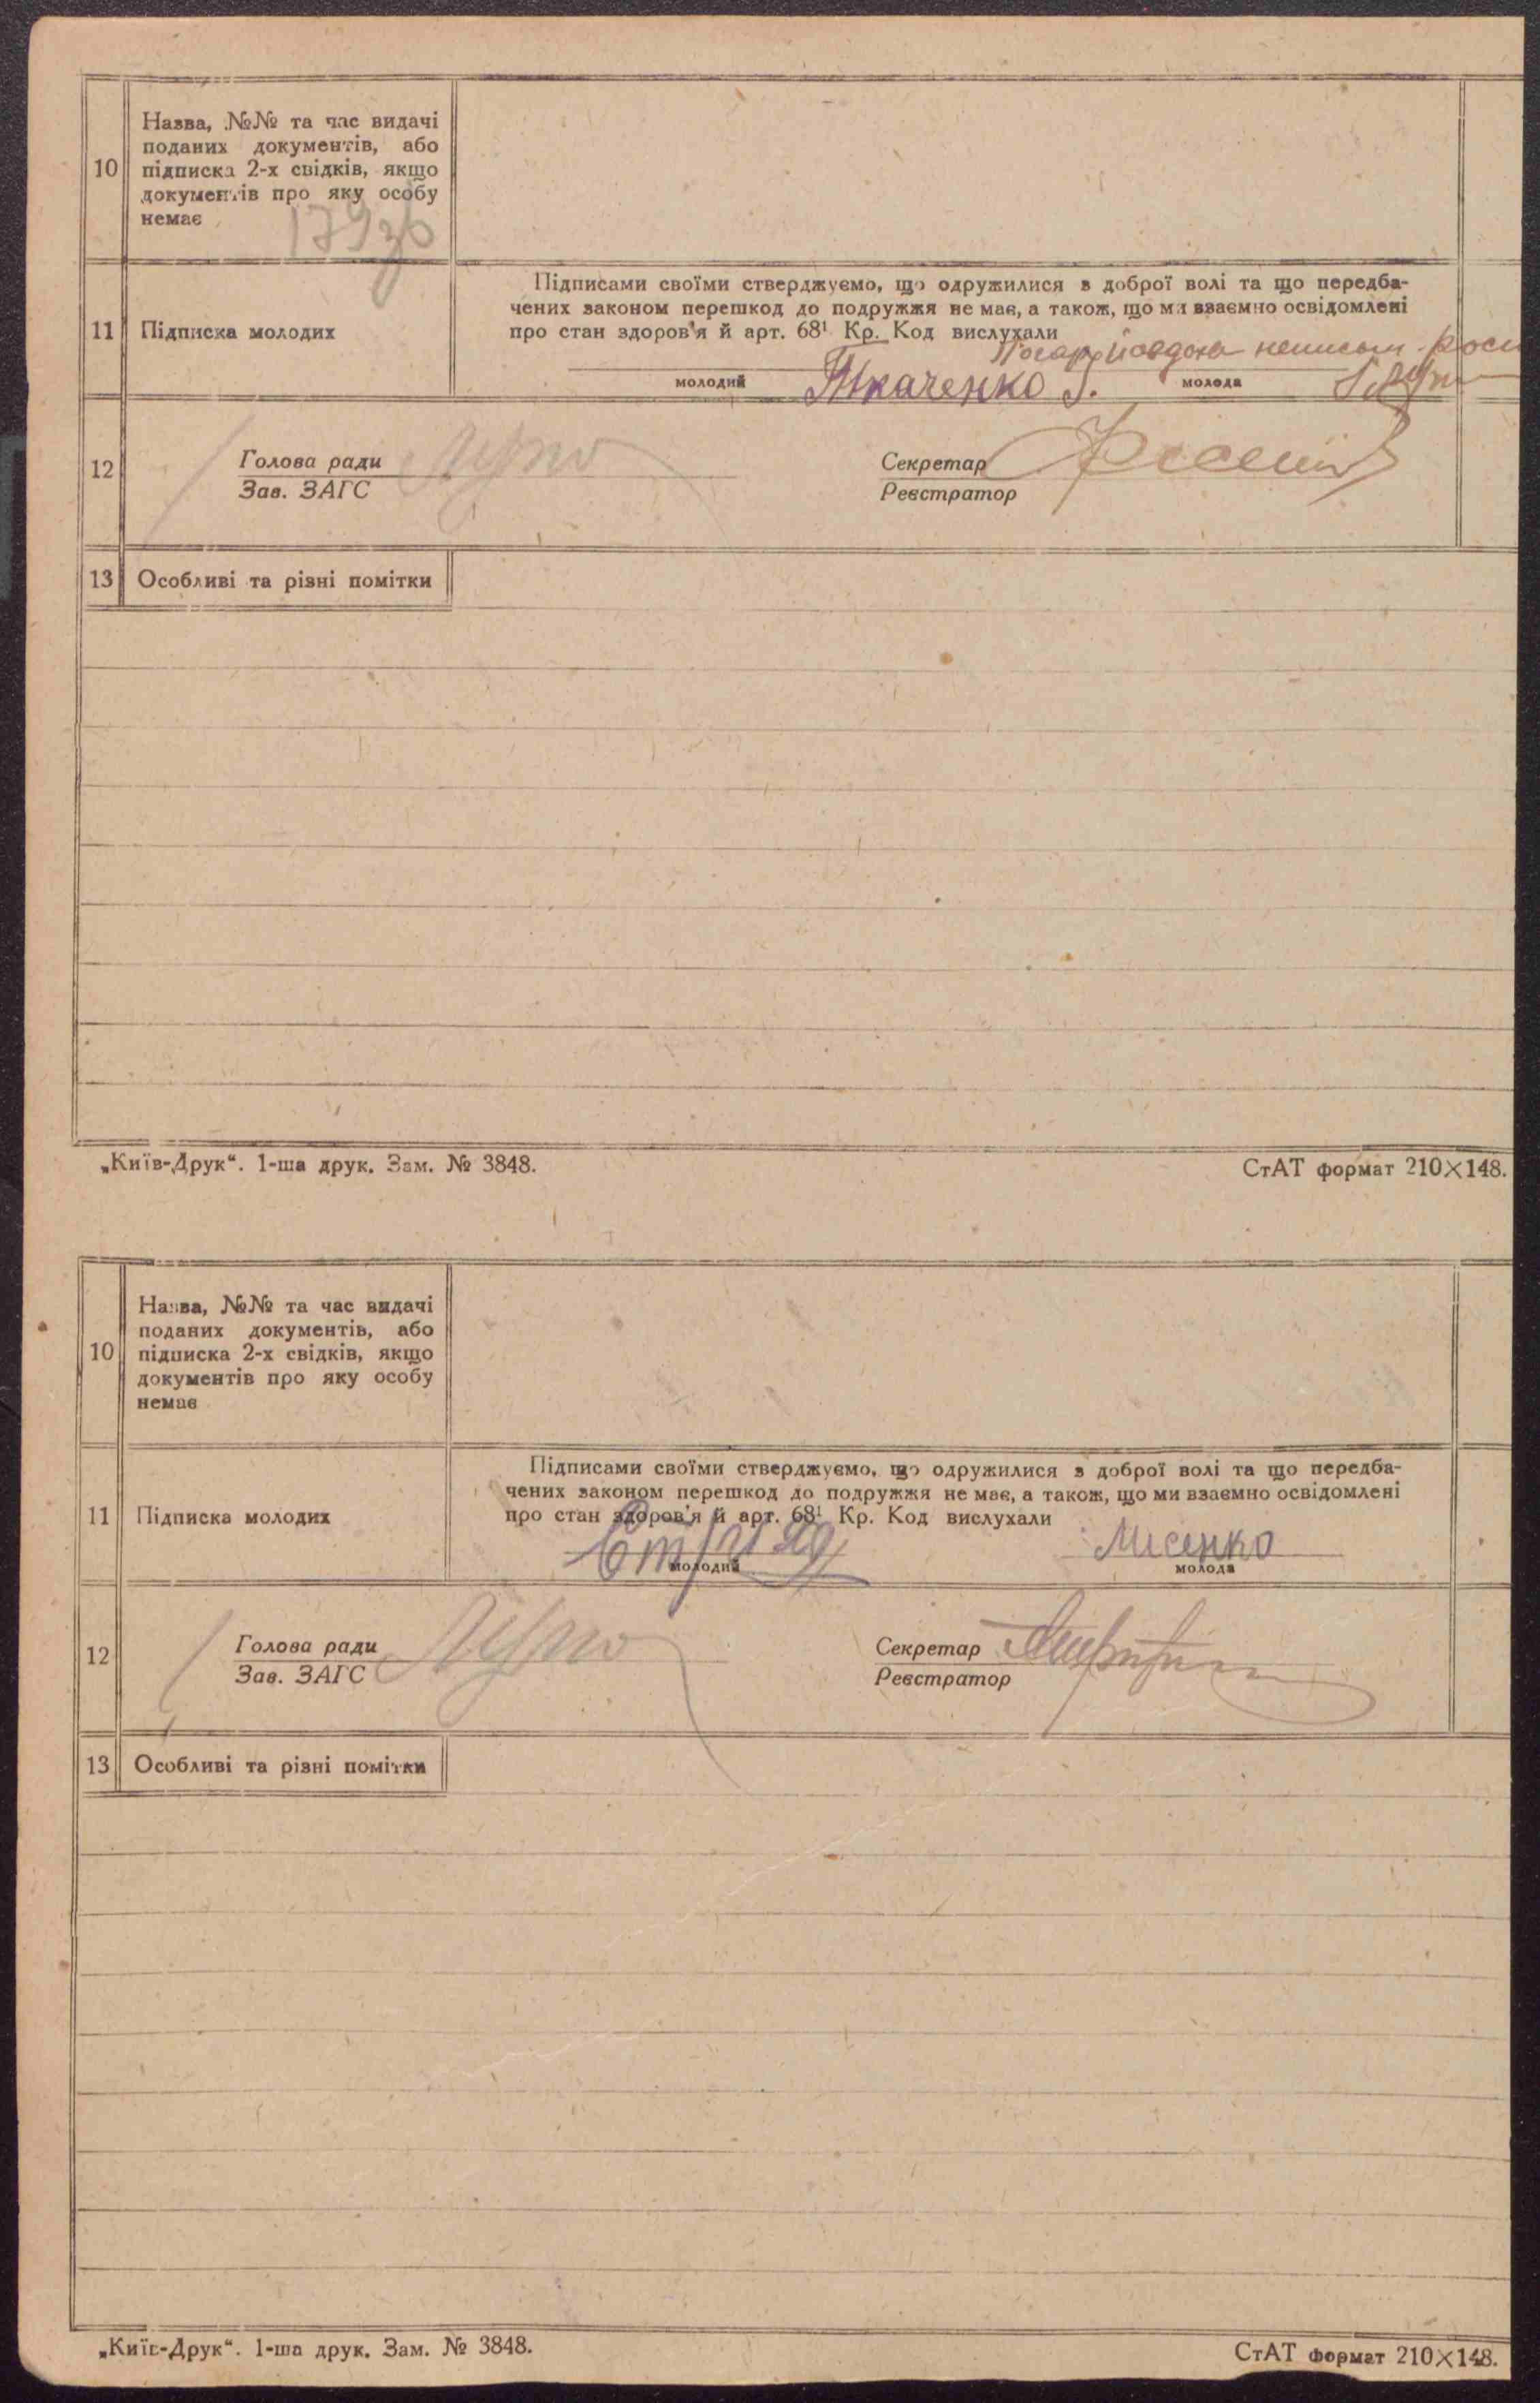 10
Назва, №№ та час видачі
поданих документів, або
підписка 2-х свідків, якщо
документів про яку особу
немає
179зб
11
Підписка молодих
Підписами своїми стверджуємо, що одружилися з доброї волі та що передба-
чених законом перешкод до подружжя не має, а також, що ми взаємно освідомлені
про стан здоров'я й арт. 68¹ Кр. Код вислухали
молодий Ткаченко молода
12
Голова ради
Зав. ЗАГС
Секретар
Реєстратор
13
Особливі та різні помітки
„Київ-Друк“. 1-ша друк. Зам. № 3848.
СтАТ формат 210×148.
10
Назва, №№ та час видачі
поданих документів, або
підписка 2-х свідків, якщо
документів про яку особу
немає
11
Підписка молодих
Підписами своїми стверджуємо, що одружилися з доброї волі та що передба-
чених законом перешкод до подружжя не має, а також, що ми взаємно освідомлені
про стан здоров'я й арт. 68¹ Кр. Код вислухали
Лисенко
молодий
молода
12
Голова ради
Зав. ЗАГС
Секретар
Реєстратор
13
Особливі та різні помітки
„Київ-Друк“. 1-ша друк. Зам. № 3848.
СтАТ формат 210×148.